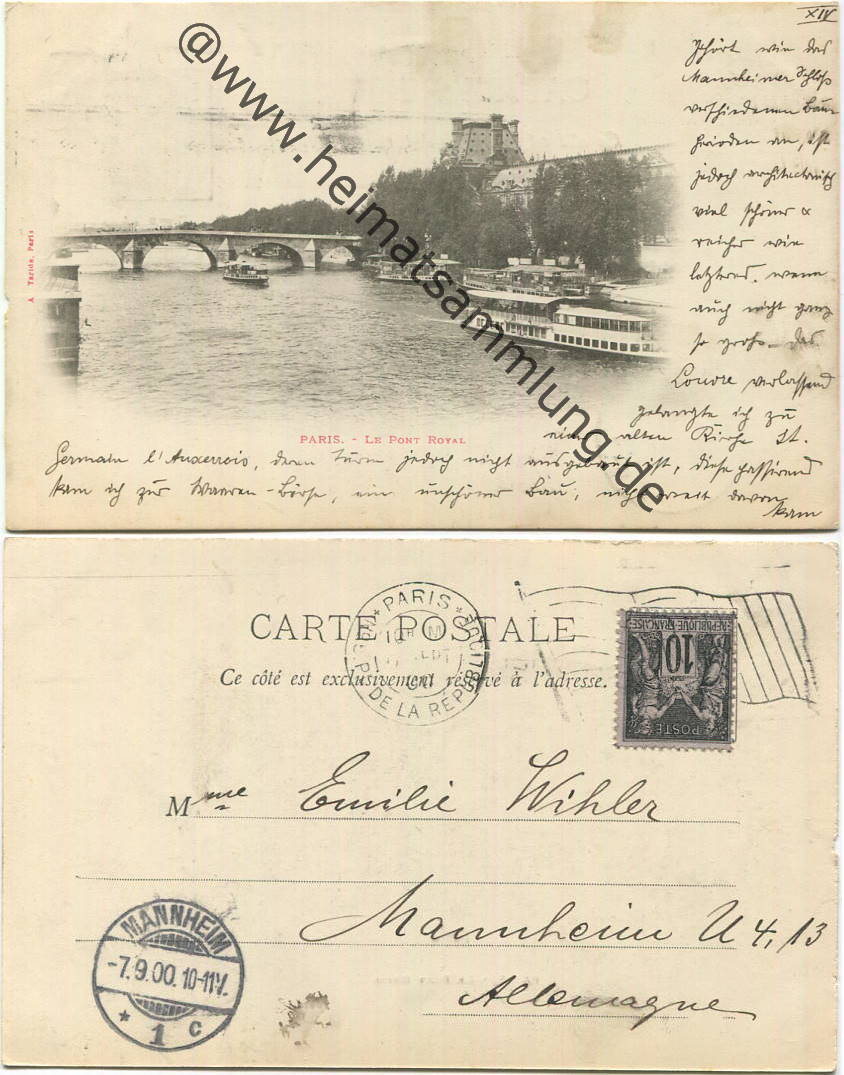 XIV
gehört wie das
Mannheimer Schloß
verschiedenen Bau=
perioden an, ist
jedoch architektonisch
viel schöner &
reicher wie
letzteres, wenn
auch nicht ganz
so groß. Das
Louvre verlassend
gelangte ich zu
einer alten Kirche St.
Germain l'Auxerrois, deren Turm jedoch nicht ausgebaut ist, diese passirend
kam ich zur Waaren-Börse, ein unschöner Bau, nicht weit davon
kam
A. Taride, Paris
PARIS. - LE PONT ROYAL
@www.heimatsammlung.de
CARTE POSTALE
Ce côté est exclusivement réservé à l'adresse.
PARIS
DE LA RÉPUBLIQUE
REPUBLIQUE FRANÇAISE
10
POSTE
Mme Emilie Wihler
Mannheim U 4, 13
Allemagne
MANNHEIM
-7.9.00.10-11V.
* 1 c